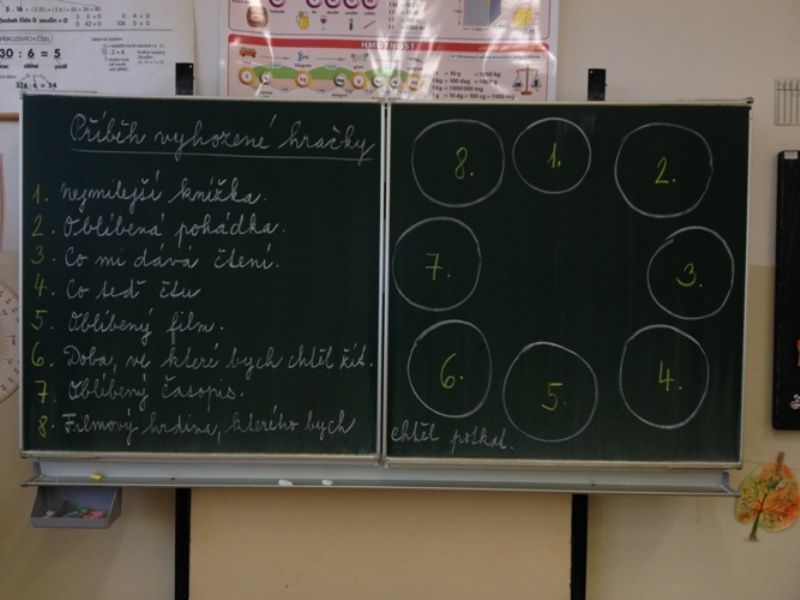 Příběh vyhozené hračky
1. Nejmilejší knížka.
2. Oblíbená pohádka.
3. Co mi dává čtení.
4. Co teď čtu
5. Oblíbený film.
6. Doba, ve které bych chtěl žít.
7. Oblíbený časopis.
8. Filmový hrdina, kterého bych
chtěl potkat.
8.
1.
2.
7.
3.
6.
5.
4.
30 : 6 = 5
HMOTNOST